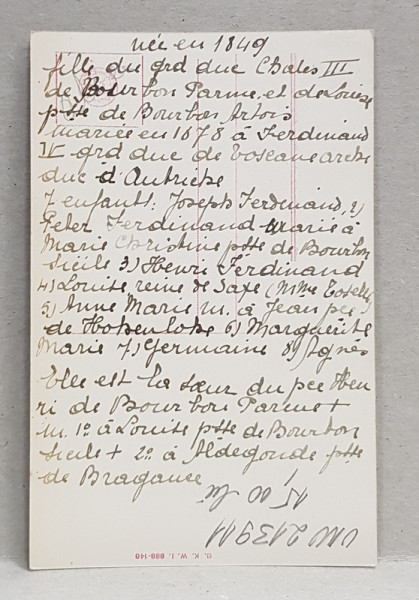 née en 1849
fille du grd duc Chales III
de Bourbon Parme et de Louise
psse de Bourbon Artois
mariée en 1678 à Ferdinand
IV grd duc de Toscane archi
duc d'Autriche
7 enfants: Joseph Ferdinand, 2)
Peter Ferdinand marié à
Marie Christine psse de Bourbon
Sicile 3) Henri Ferdinand
4) Louise reine de Saxe (Mme Toselli)
5) Anne Marie m. à Jean pce
de Hohenlohe 6) Margueite
Marie 7) Germaine 8) Agnès
Elle est la sœur du pce Hen
ri de Bourbon Parme +
m. 1º à Louise psse de Bourbon
Sicile + 2º à Aldegonde psse
de Bragance
15,00 lei
UNU 213911
B. K. W. I. 888-140